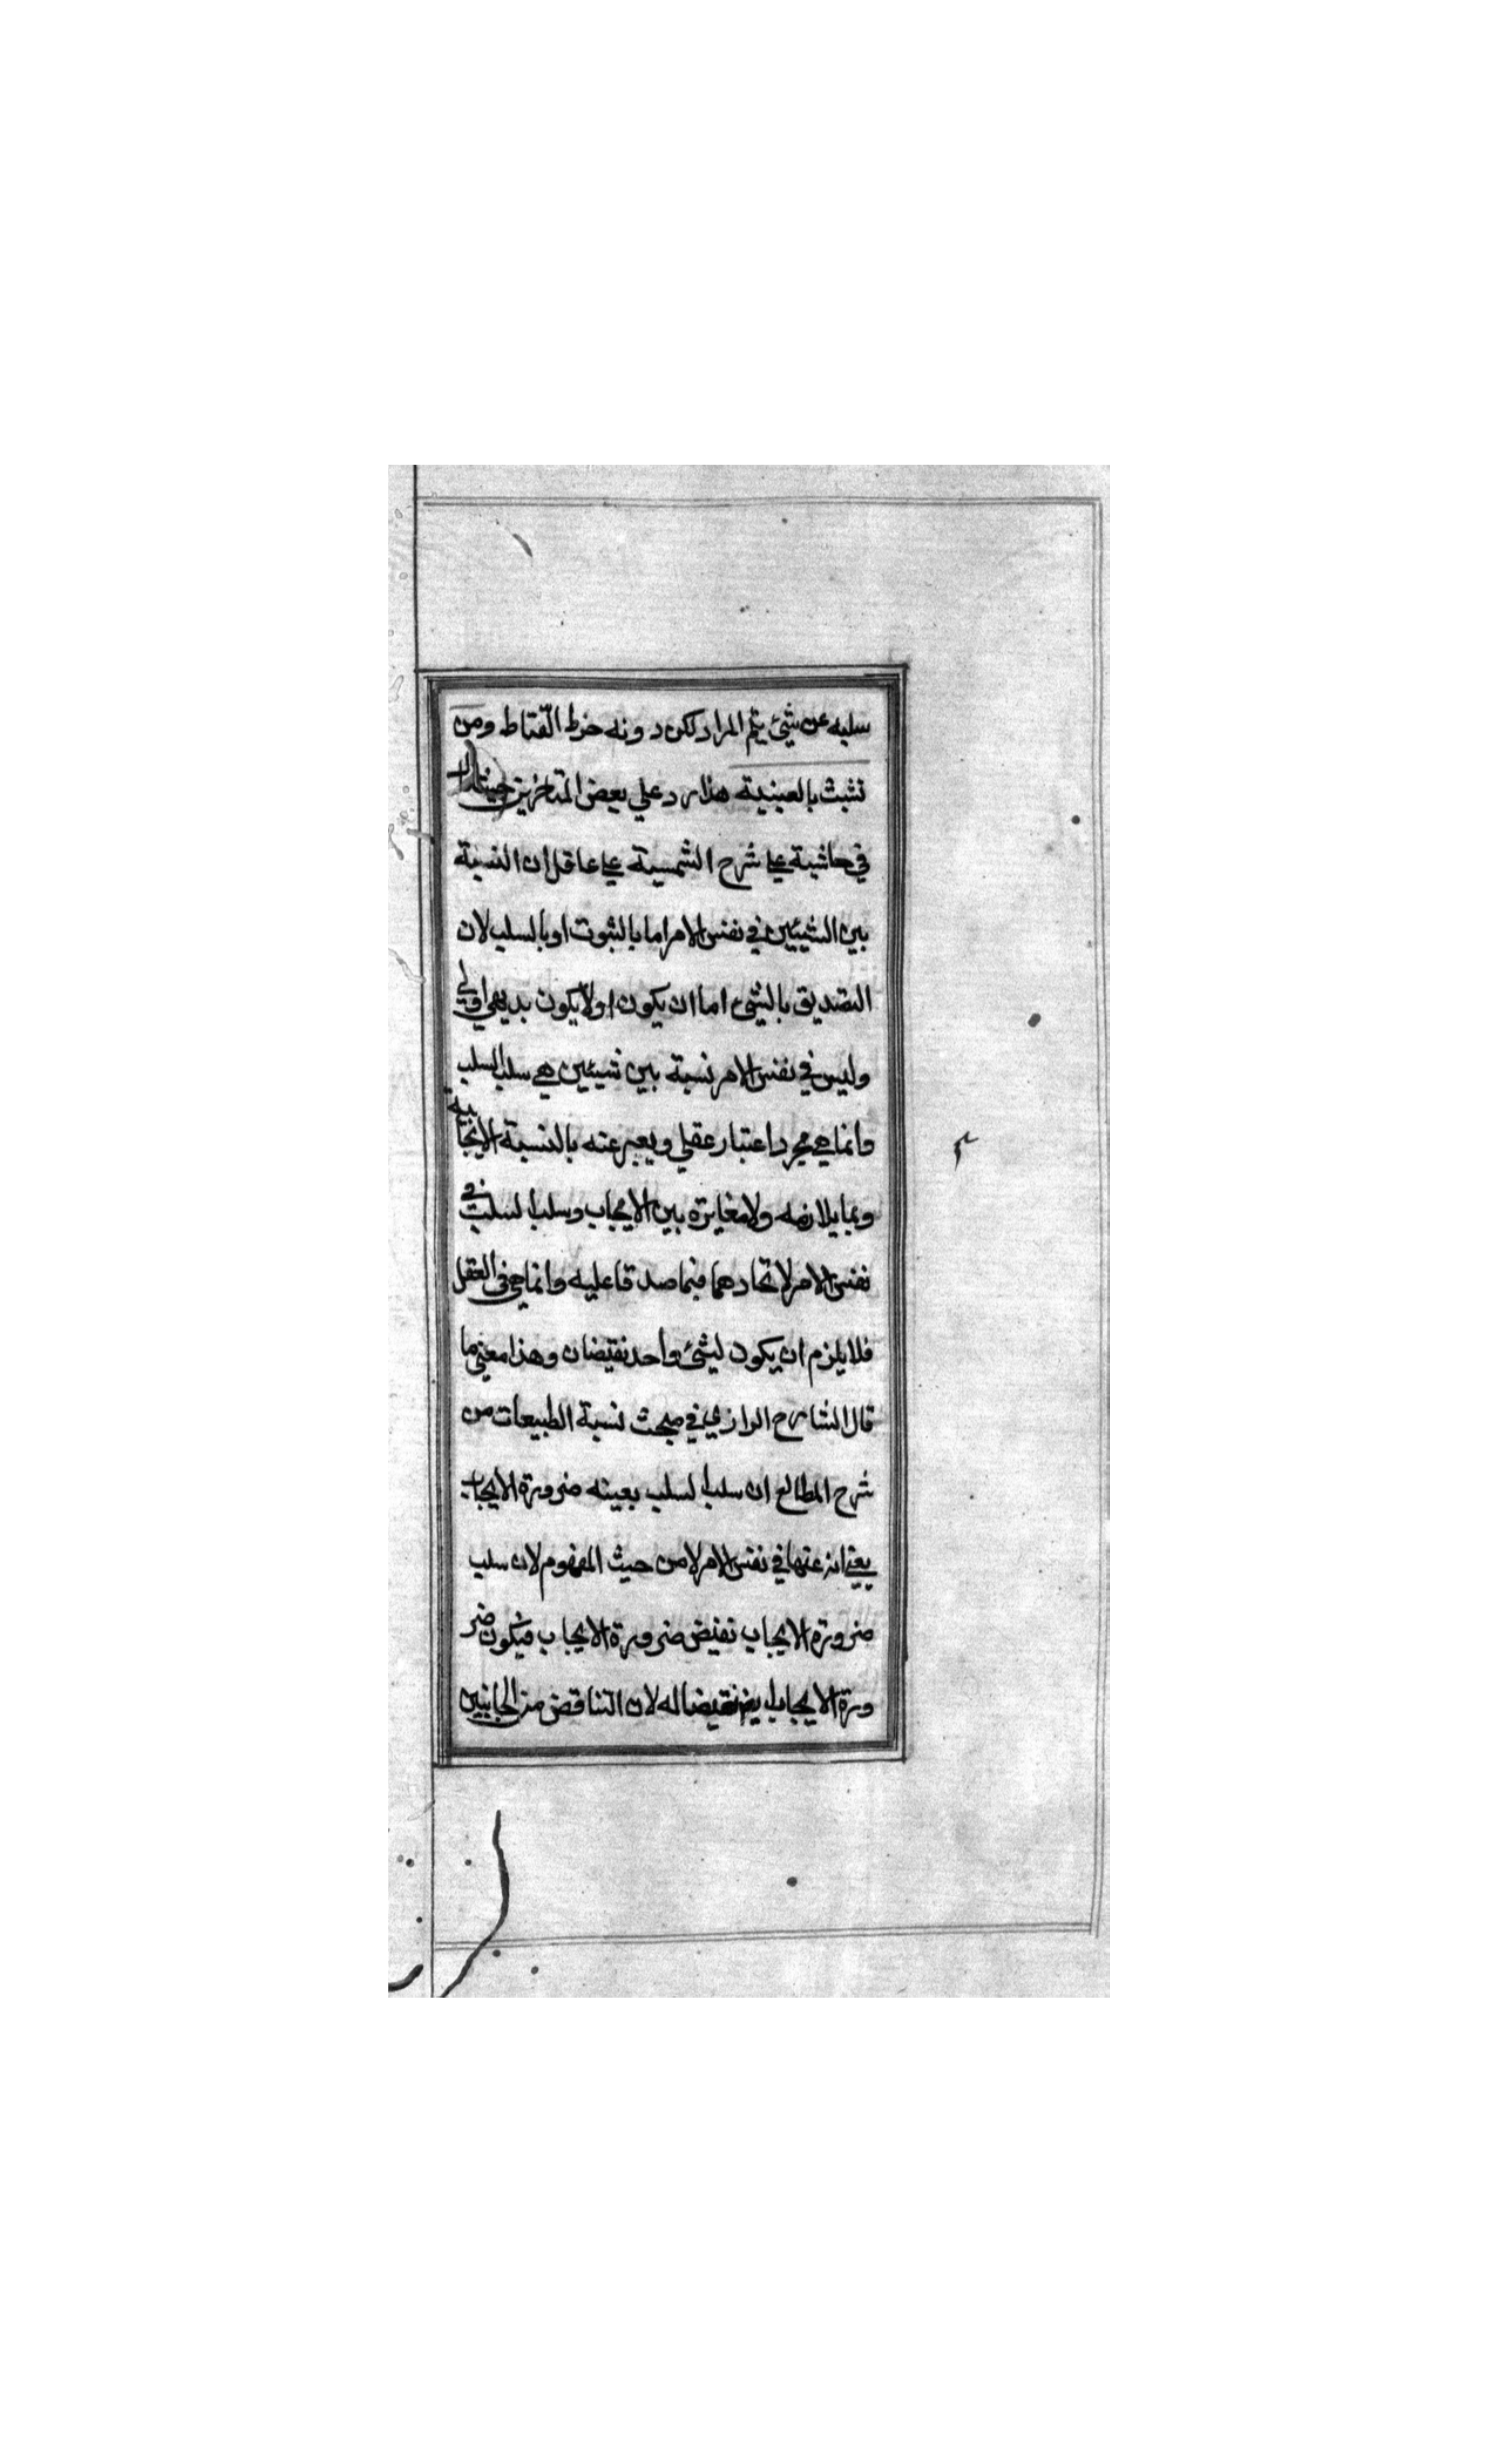 سلبه عن شيئ يتم المراد لكن دونه خرط القتاط ومن
تشبث بالعينية هذا رد علي بعض المتاخرين حيث قال
في حاشية علي شرح الشمسية علي عاقل ان النسبة
بين الشيئين في نفس الامر اما بالثبوت او بالسلب لان
التصديق بالشئ اما ان يكون او لا يكون بديهي اولي
وليس في نفس الامر نسبة بين شيئين هي سلب السلب
وانما هي مجرد اعتبار عقلي ويعبر عنه بالنسبة الايجابية
وبما يلازمه ولا مغايرة بين الايجاب وسلب السلب في
نفس الامر لاتحادهما فيما صدقا عليه وانما هي في العقل
فلا يلزم ان يكون لشئ واحد نقيضان وهذا معني ما
قال الشارح الرازي في مبحث نسبة الطبيعات من
شرح المطالع ان سلب السلب بعينه ضرورة الايجاب
يعني انه عنها في نفس الامر لا من حيث المفهوم لان سلب
ضرورة الايجاب نقيض ضرورة الايجاب فيكون ضر
ورة الايجاب ايض نقيضا له لان التناقض من الجانبين